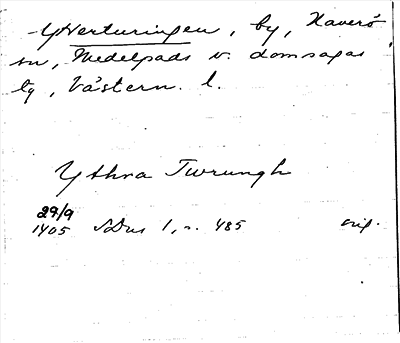 Ytterturingen, by, Haverö
sn, Medelpads v. domsagas
tg, Västern. l.
Ythra Twrungh
29/9
1405 SDns 1, n. 485 orig.